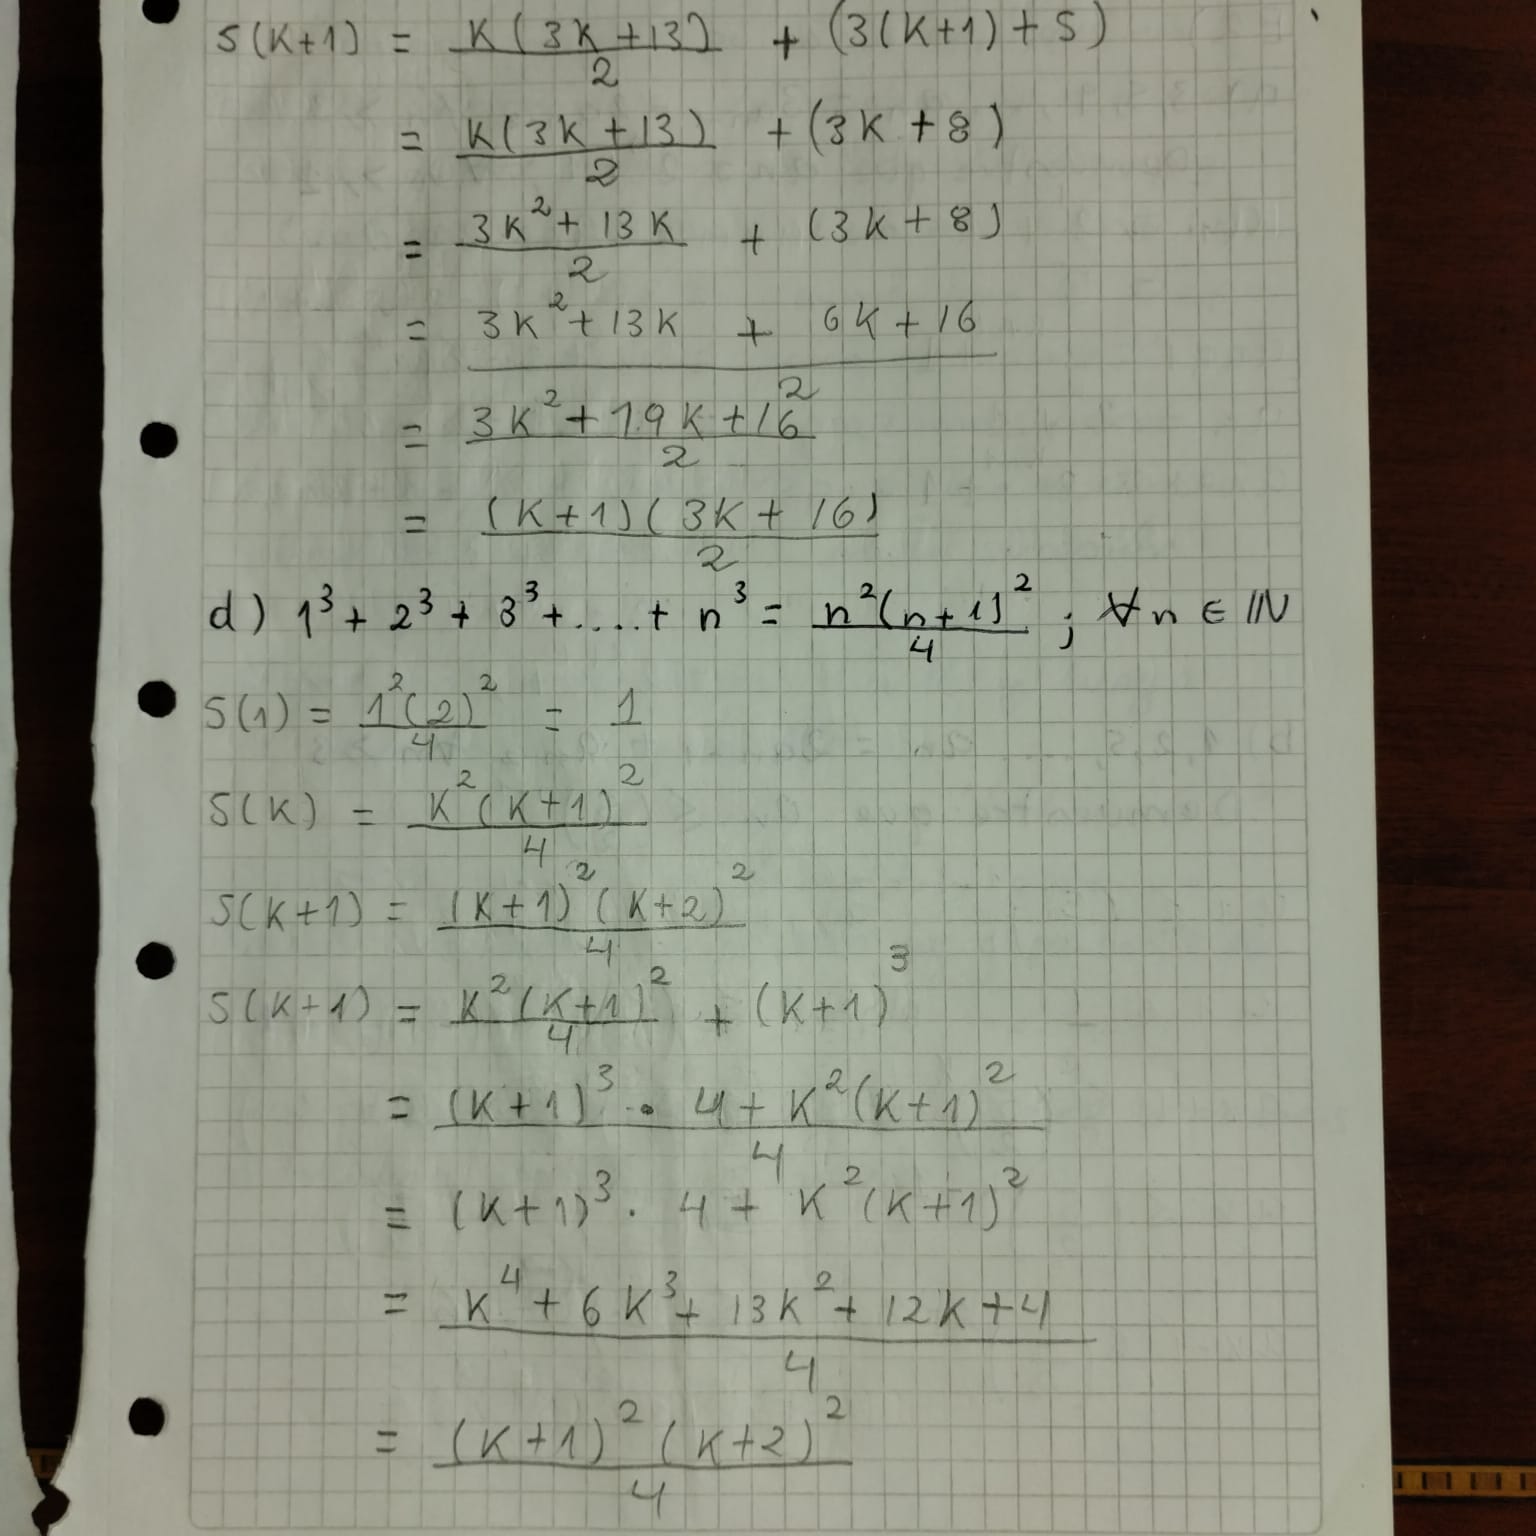 S(K+1) = K(3K+13)/2 + (3(K+1)+5)
= K(3K+13)/2 + (3K+8)
= 3K²+13K/2 + (3K+8)
= 3K²+13K + 6K+16/2
= 3K²+19K+16/2
= (K+1)(3K+16)/2
d) 1³+2³+3³+....+ n³ = n²(n+1)²/4 ; ∀n ∈ ℕ
S(1) = 1²(2)²/4 = 1
S(K) = K²(K+1)²/4
S(K+1) = (K+1)²(K+2)²/4
S(K+1) = K²(K+1)²/4 + (K+1)³
= (K+1)³ · 4 + K²(K+1)²/4
= (K+1)³ · 4 + K²(K+1)²
= K⁴+6K³+13K²+12K+4/4
= (K+1)²(K+2)²/4